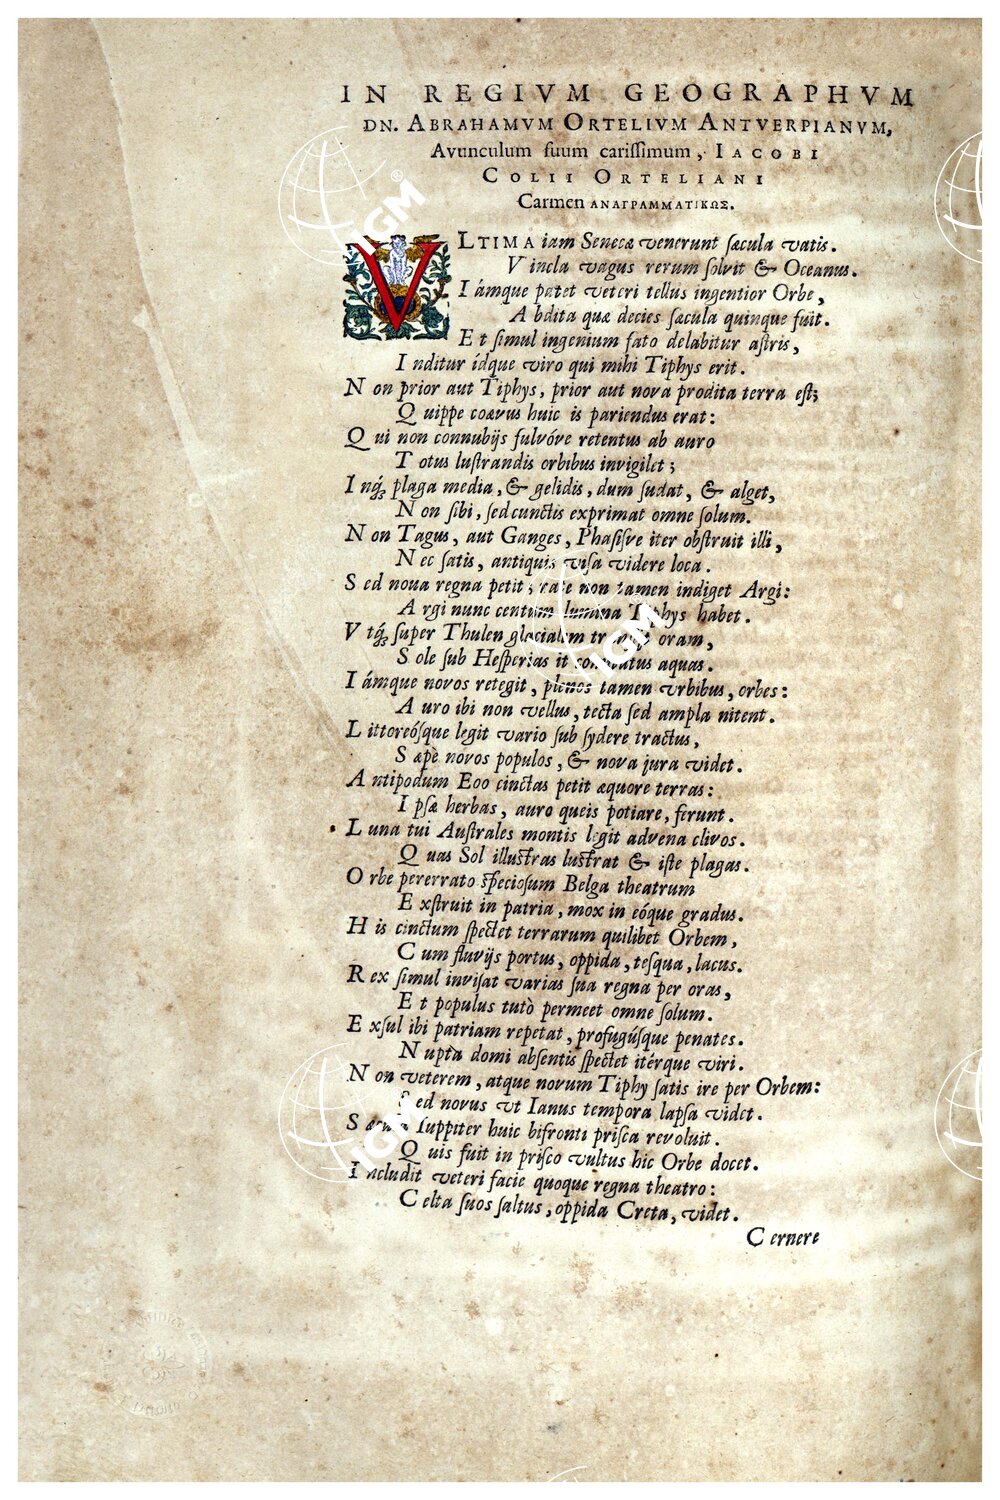 IN REGIVM GEOGRAPHVM
DN. ABRAHAMVM ORTELIVM ANTVERPIANVM,
Avunculum ſuum cariſſimum, IACOBI
COLII ORTELIANI
Carmen ΑΝΑΓΡΑΜΜΑΤΙΚΩΣ.
VLTIMA iam Senecæ venerunt ſæcula vatis.
Vincla vagus rerum ſolvit & Oceanus.
Iámque patet veteri tellus ingentior Orbe,
Abdita quæ decies ſæcula quinque fuit.
Et ſimul ingenium fato delabitur aſtris,
Inditur idque viro qui mihi Tiphys erit.
Non prior aut Tiphys, prior aut nova prodita terra eſt;
Quippe coævus huic is pariendus erat:
Qui non connubijs fulvóve retentus ab auro
Totus luſtrandis orbibus invigilet;
Inq́ꝫ plaga media, & gelidis, dum ſudat, & alget,
Non ſibi, ſed cunctis exprimat omne ſolum.
Non Tagus, aut Ganges, Phaſiſve iter obſtruit illi,
Nec ſatis, antiquis viſa videre loca.
Sed noua regna petit; rate non tamen indiget Argi:
Argi nunc centum lumina Tiphys habet.
Vtq́ꝫ ſuper Thulen glacialem tranſit oram,
Sole ſub Heſperias it comitatus aquas.
Iámque novos retegit, plenos tamen vrbibus, orbes:
Auro ibi non vellus, tecta ſed ampla nitent.
Littoreóſque legit vario ſub ſydere tractus,
Sæpè novos populos, & nova jura videt.
Antipodum Eoo cinctas petit æquore terras:
Ipſæ herbas, auro queis potiare, ferunt.
Luna tui Auſtrales montis legit advena clivos.
Quas Sol illuſtras luſtrat & iſte plagas.
Orbe pererrato ſpecioſum Belga theatrum
Exſtruit in patria, mox in eóque gradus.
His cinctum ſpectet terrarum quilibet Orbem,
Cum fluvijs portus, oppida, teſqua, lacus.
Rex ſimul inviſat varias ſua regna per oras,
Et populus tutò permeet omne ſolum.
Exſul ibi patriam repetat, profugúſque penates.
Nupta domi abſentis ſpectet itérque viri.
Non veterem, atque novum Tiphy ſatis ire per Orbem:
Sed novus vt Ianus tempora lapſa videt.
Sæcula Iuppiter huic bifronti priſca revoluit.
Quis fuit in priſco vultus hic Orbe docet.
Includit veteri facie quoque regna theatro:
Celta ſuos ſaltus, oppida Creta, videt.
Cernere
IGM®
IGM
IGM